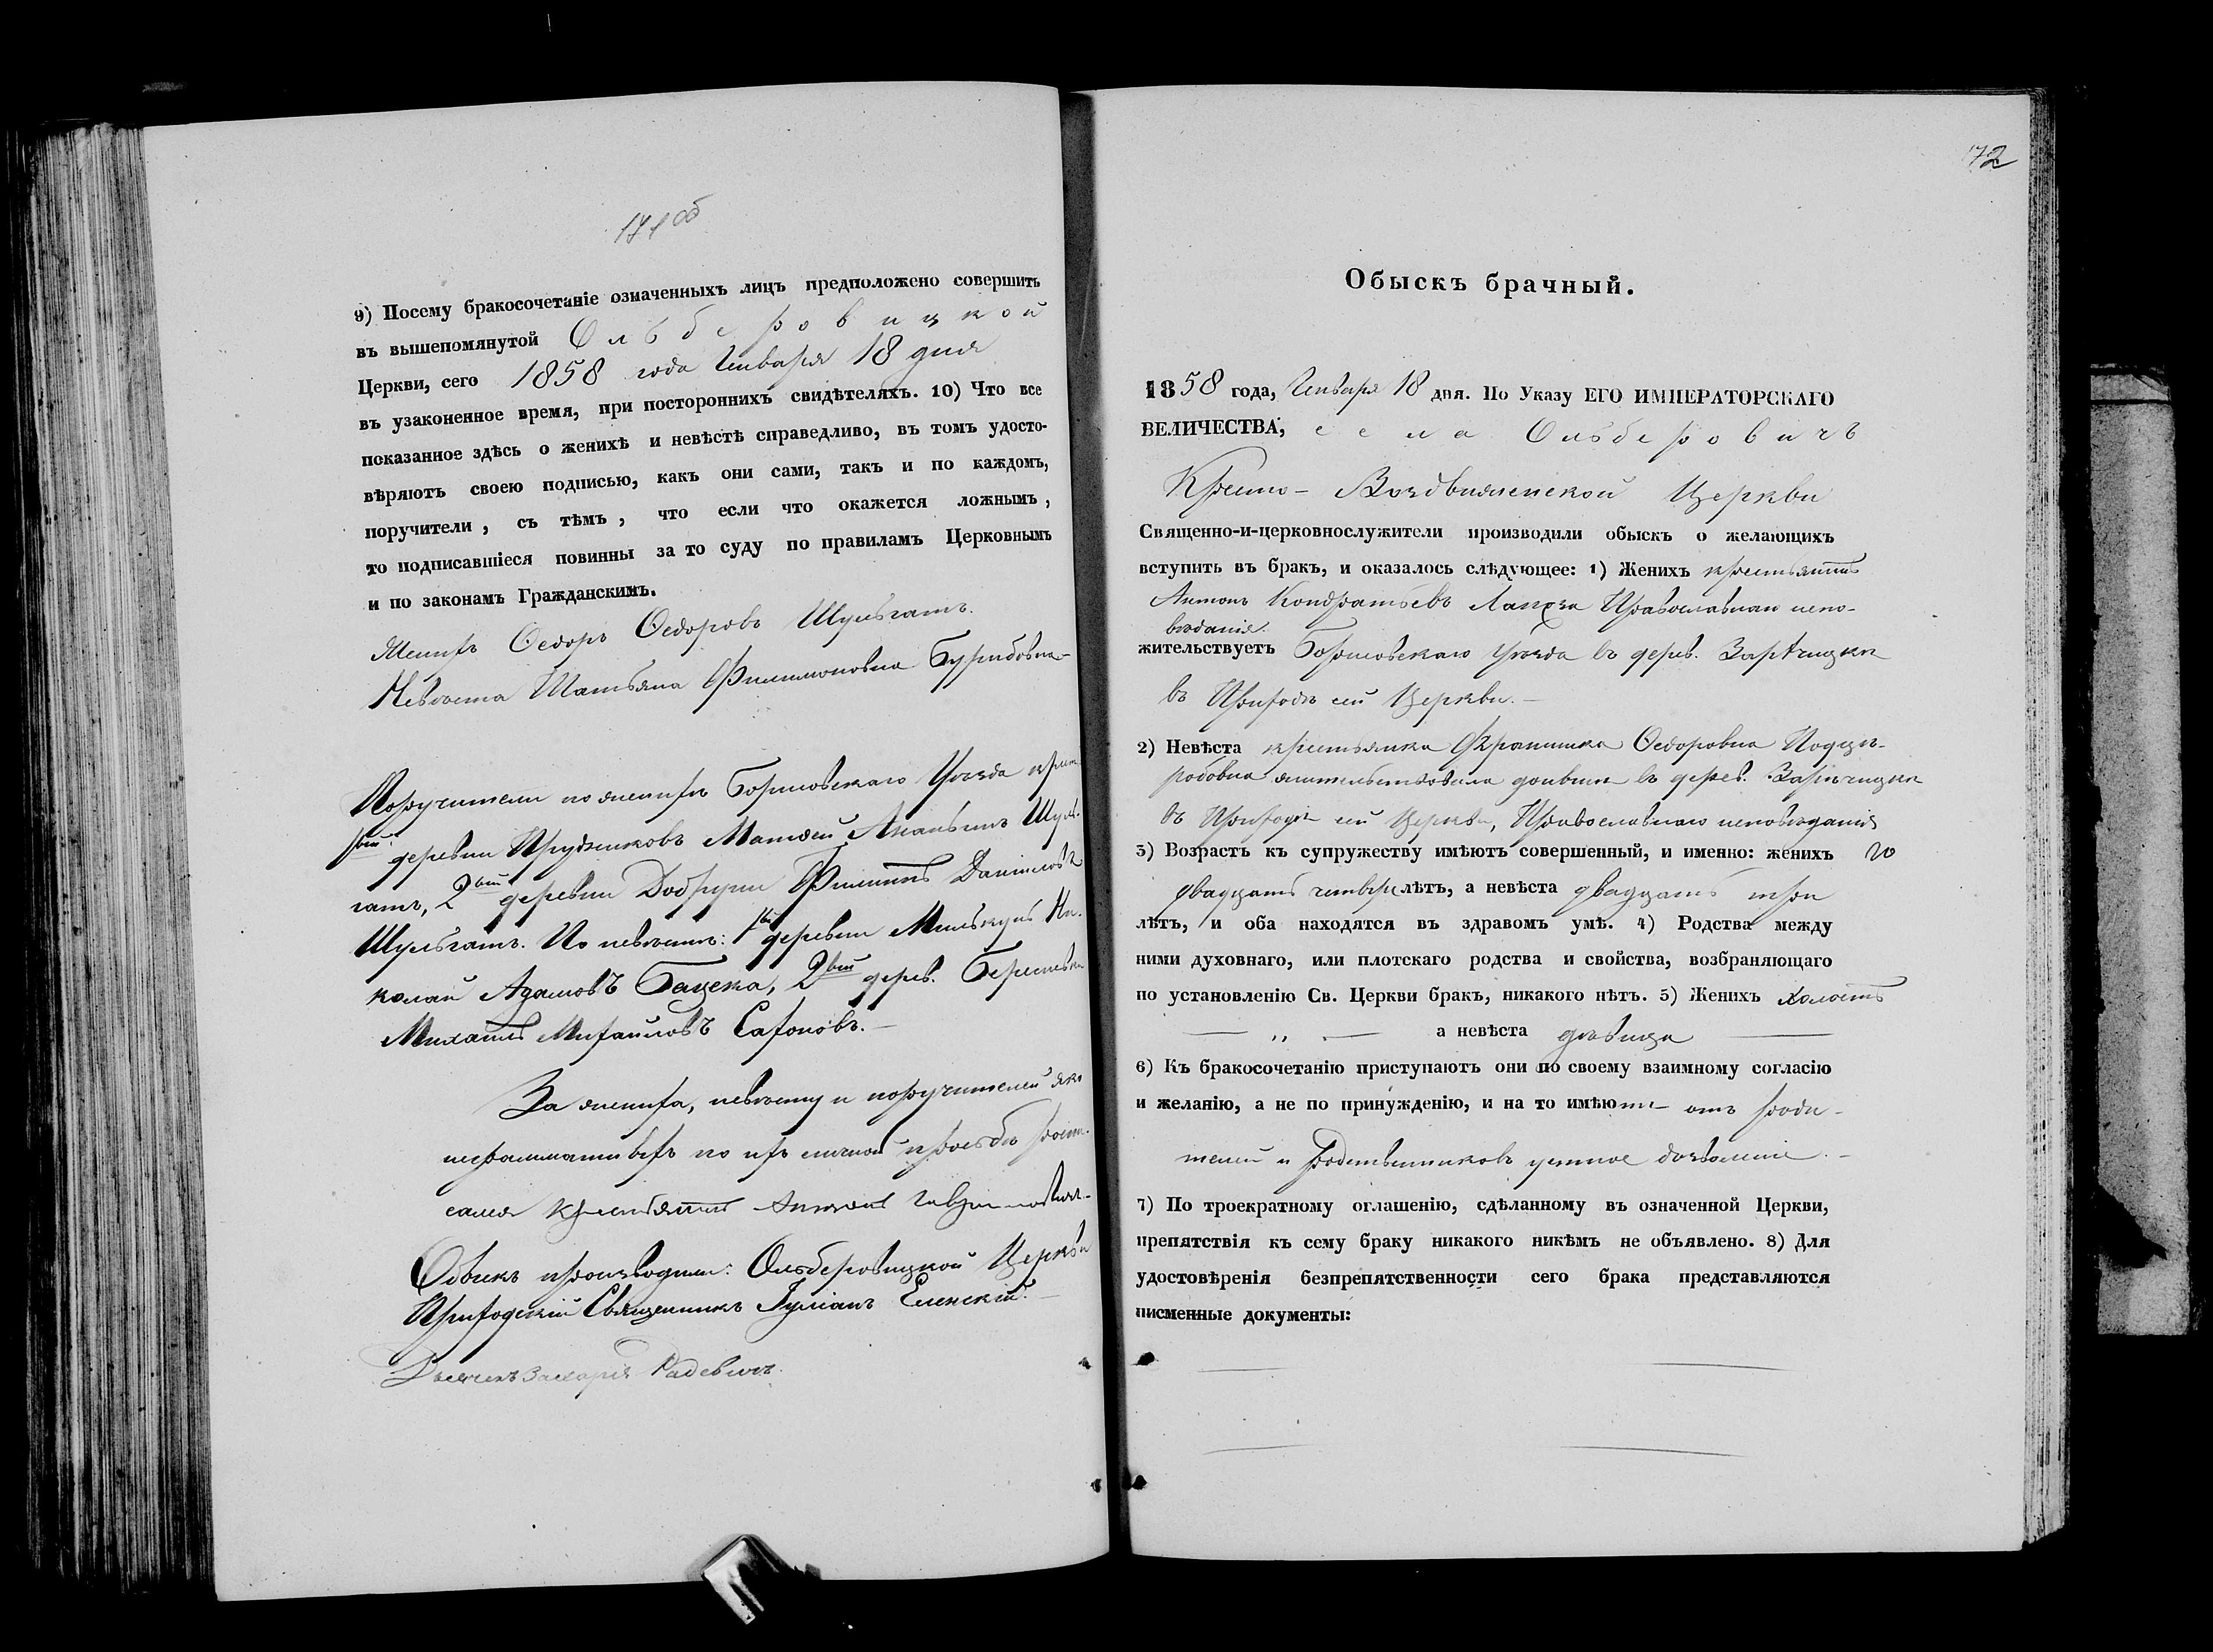 171 об
9) Посему бракосочетаніе означенныхъ лицъ предположено совершить
въ вышепомянутой Ольберовицкой
Церкви, сего 1858 года Генваря 18 дня
въ узаконенное время, при постороннихъ свидѣтеляхъ. 10) Что все
показанное здѣсь о женихѣ и невѣстѣ справедливо, въ томъ удосто-
вѣряютъ своею подписью, какъ они сами, такъ и по каждомъ,
поручители, съ тѣмъ, что если что окажется ложнымъ,
то подписавшіеся повинны за то суду по правиламъ Церковнымъ
и по законамъ Гражданскимъ.
Женихъ Ѳедоръ Ѳедоровъ Шульгатъ.
Невѣста Татьяна Филимоновна
Поручители по женихѣ Борисовскаго Уѣзда
1вый деревни Прудниковъ Матвей Ананьинъ Шуль-
гатъ, 2вый деревни Филиппъ Даниловъ
Шульгатъ. По невѣстѣ: 1й деревни Ни-
колай Адамовъ Бацека, 2вый дерев.
Михаилъ Михайловъ Сафоновъ.
За жениха, невѣсту и поручителей яко
неграмматныхъ по ихъ личной прозьбѣ
крестьянинъ
Обыскъ производили: Ольберовицкой Церкви
Приходскій Священникъ Іуліанъ Еленскій.
Дьячекъ Захарія Радевичъ.
172
Обыскъ брачный.
1858 года, Генваря 18 дня. По Указу ЕГО ИМПЕРАТОРСКАГО
ВЕЛИЧЕСТВА, села Ольберовичъ
Кресто-Воздвиженской Церкви
Священно-и-церковнослужители производили обыскъ о желающихъ
вступить въ бракъ, и оказалось слѣдующее: 1) Женихъ крестьянинъ
Антонъ Кондратьевъ Православнаго испо-
вѣданія.
жительствуетъ Борисовскаго Уѣзда въ дерев. Зарѣчицки
въ Приходѣ сей Церкви.
2) Невѣста крестьянка Ѳедоровна Подде-
робовна жительствовала донынѣ въ дерев. Зарѣчицки
въ Приходѣ сей Церкви, Православнаго исповѣданія
3) Возрастъ къ супружеству имѣютъ совершенный, и именно: женихъ
двадцать четыре лѣтъ, а невѣста двадцать три
лѣтъ, и оба находятся въ здравомъ умѣ. 4) Родства между
ними духовнаго, или плотскаго родства и свойства, возбраняющаго
по установленію Св. Церкви бракъ, никакого нѣтъ. 5) Женихъ холостъ
а невѣста дѣвица
6) Къ бракосочетанію приступаютъ они по своему взаимному согласію
и желанію, а не по принужденію, и на то имѣютъ отъ роди-
телей и родственниковъ устное дозволеніе.
7) По троекратному оглашенію, сдѣланному въ означенной Церкви,
препятствія къ сему браку никакого никѣмъ не объявлено. 8) Для
удостовѣренія безпрепятственности сего брака представляются
писменные документы: